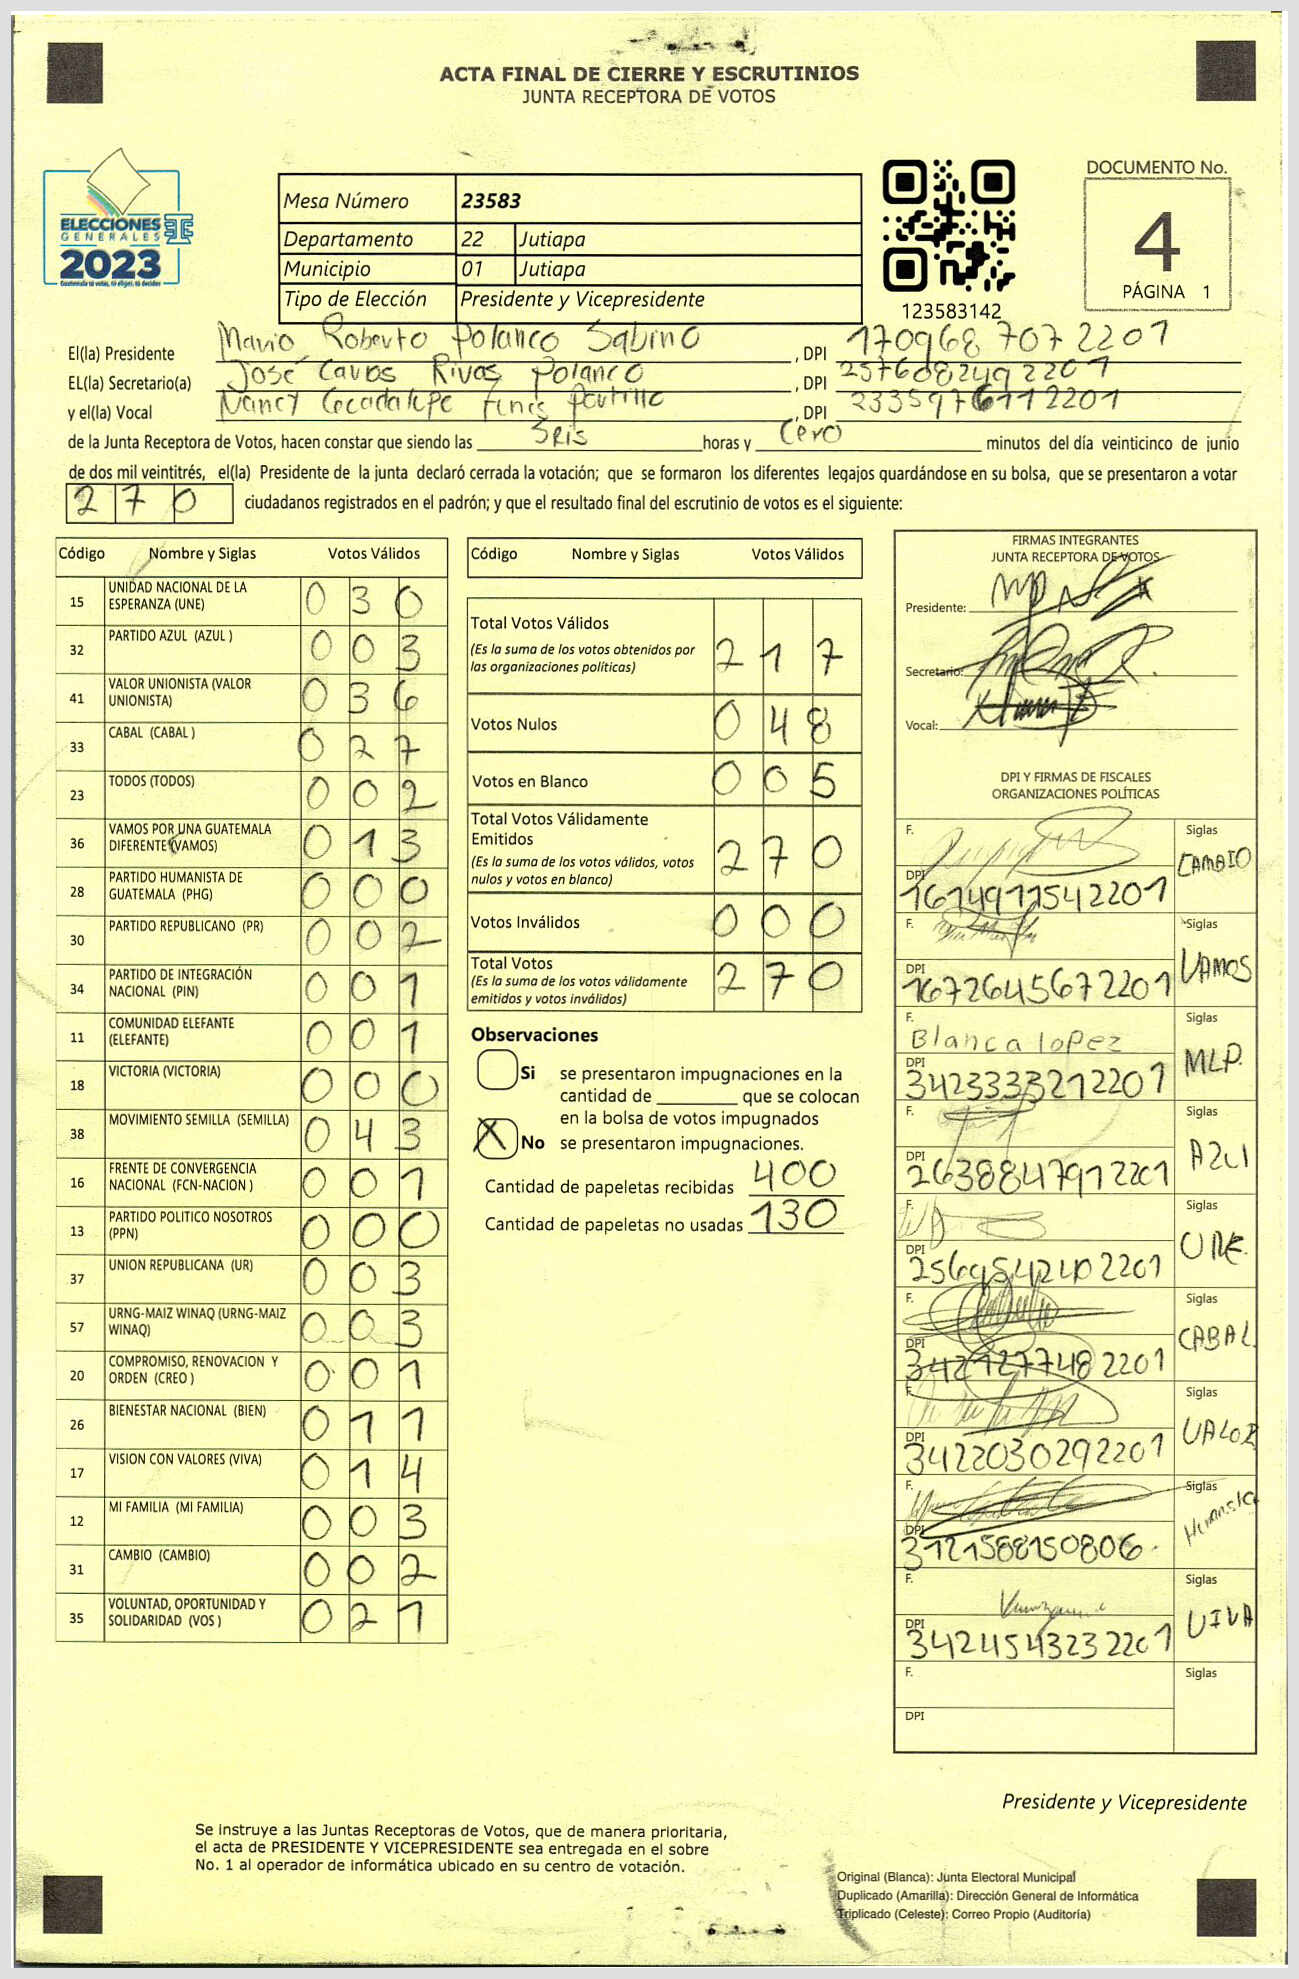 ACTA FINAL DE CIERRE Y ESCRUTINIOS
JUNTA RECEPTORA DE VOTOS
ELECCIONES
GENERALES
2023
Guatemala tú votas, tú eliges, tú decides
Mesa Número 23583
Departamento 22 Jutiapa
Municipio 01 Jutiapa
Tipo de Elección Presidente y Vicepresidente
123583142
DOCUMENTO No.
4
PÁGINA 1
El(la) Presidente Mario Roberto Polanco Sabino , DPI 170968 707 2201
EL(la) Secretario(a) José Carlos Rivas Polanco , DPI 2576082492201
y el(la) Vocal Nancy Portillo , DPI 2335976112201
de la Junta Receptora de Votos, hacen constar que siendo las horas y cero minutos del día veinticinco de junio
de dos mil veintitrés, el(la) Presidente de la junta declaró cerrada la votación; que se formaron los diferentes legajos quardándose en su bolsa, que se presentaron a votar
270 ciudadanos registrados en el padrón; y que el resultado final del escrutinio de votos es el siguiente:
Código Nombre y Siglas Votos Válidos
15 UNIDAD NACIONAL DE LA ESPERANZA (UNE) 030
32 PARTIDO AZUL (AZUL ) 003
41 VALOR UNIONISTA (VALOR UNIONISTA) 036
33 CABAL (CABAL ) 027
23 TODOS (TODOS) 002
36 VAMOS POR UNA GUATEMALA DIFERENTE (VAMOS) 013
28 PARTIDO HUMANISTA DE GUATEMALA (PHG) 000
30 PARTIDO REPUBLICANO (PR) 002
34 PARTIDO DE INTEGRACIÓN NACIONAL (PIN) 001
11 COMUNIDAD ELEFANTE (ELEFANTE) 001
18 VICTORIA (VICTORIA) 000
38 MOVIMIENTO SEMILLA (SEMILLA) 043
16 FRENTE DE CONVERGENCIA NACIONAL (FCN-NACION ) 001
13 PARTIDO POLITICO NOSOTROS (PPN) 000
37 UNION REPUBLICANA (UR) 003
57 URNG-MAIZ WINAQ (URNG-MAIZ WINAQ) 003
20 COMPROMISO, RENOVACION Y ORDEN (CREO ) 001
26 BIENESTAR NACIONAL (BIEN) 011
17 VISION CON VALORES (VIVA) 014
12 MI FAMILIA (MI FAMILIA) 003
31 CAMBIO (CAMBIO) 002
35 VOLUNTAD, OPORTUNIDAD Y SOLIDARIDAD (VOS ) 021
Código Nombre y Siglas Votos Válidos
Total Votos Válidos 217
(Es la suma de los votos obtenidos por
las organizaciones políticas)
Votos Nulos 048
Votos en Blanco 005
Total Votos Válidamente
Emitidos 270
(Es la suma de los votos válidos, votos
nulos y votos en blanco)
Votos Inválidos 000
Total Votos 270
(Es la suma de los votos válidamente
emitidos y votos inválidos)
Observaciones
Si se presentaron impugnaciones en la
cantidad de ________ que se colocan
en la bolsa de votos impugnados
X No se presentaron impugnaciones.
Cantidad de papeletas recibidas 400
Cantidad de papeletas no usadas 130
FIRMAS INTEGRANTES
JUNTA RECEPTORA DE VOTOS
Presidente:
Secretario:
Vocal:
DPI Y FIRMAS DE FISCALES
ORGANIZACIONES POLÍTICAS
F. Siglas CAMBIO
DPI 1614911542201
F. Siglas VAMOS
DPI 1672645672201
F. Blanca lopez Siglas MLP.
DPI 3423333212201
F. Siglas AZUl
DPI 2638847912201
F. Siglas UNE.
DPI
F. Siglas CABAL.
DPI 3421277482201
F. Siglas VALOR
DPI 3422030292201
F. Siglas Humanista
DPI 3121588150806.
F. Siglas VIVA
DPI 3424543232201
F. Siglas
DPI
Presidente y Vicepresidente
Se instruye a las Juntas Receptoras de Votos, que de manera prioritaria,
el acta de PRESIDENTE Y VICEPRESIDENTE sea entregada en el sobre
No. 1 al operador de informática ubicado en su centro de votación.
Original (Blanca): Junta Electoral Municipal
Duplicado (Amarilla): Dirección General de Informática
Triplicado (Celeste): Correo Propio (Auditoría)